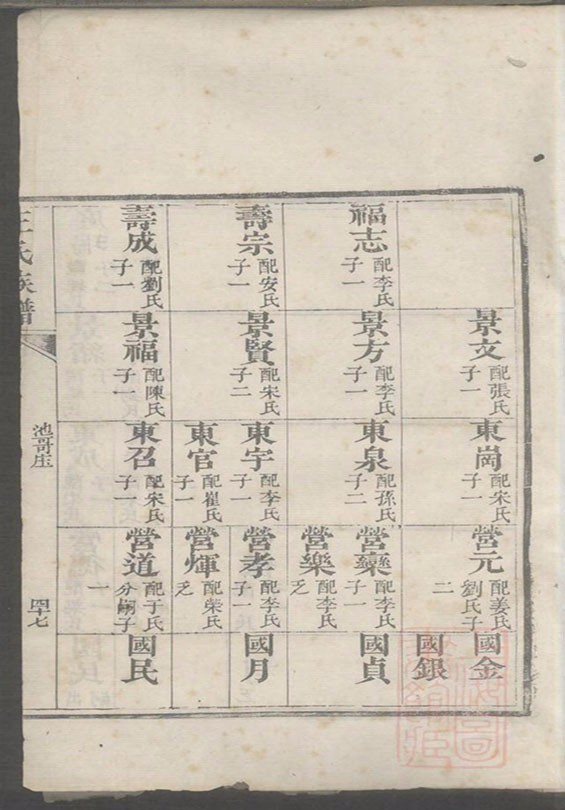 福志 配李氏 子一
壽宗 配安氏 子一
壽成 配劉氏 子一
景文 配張氏 子一
景方 配李氏 子一
景賢 配宋氏 子二
景福 配陳氏 子一
東崗 配宋氏 子一
東泉 配孫氏 子二
東宇 配李氏 子一
東官 配崔氏 子一
東召 配宋氏 子一
營元 配姜氏 劉氏子二
營蘗 配李氏 子一
營樂 配李氏 乏
營孝 配李氏 子一
營煇 配榮氏 乏
營道 配于氏 分嗣子一
國金
國銀
國貞
國月
國民
王氏族譜
池哥庄
四十七